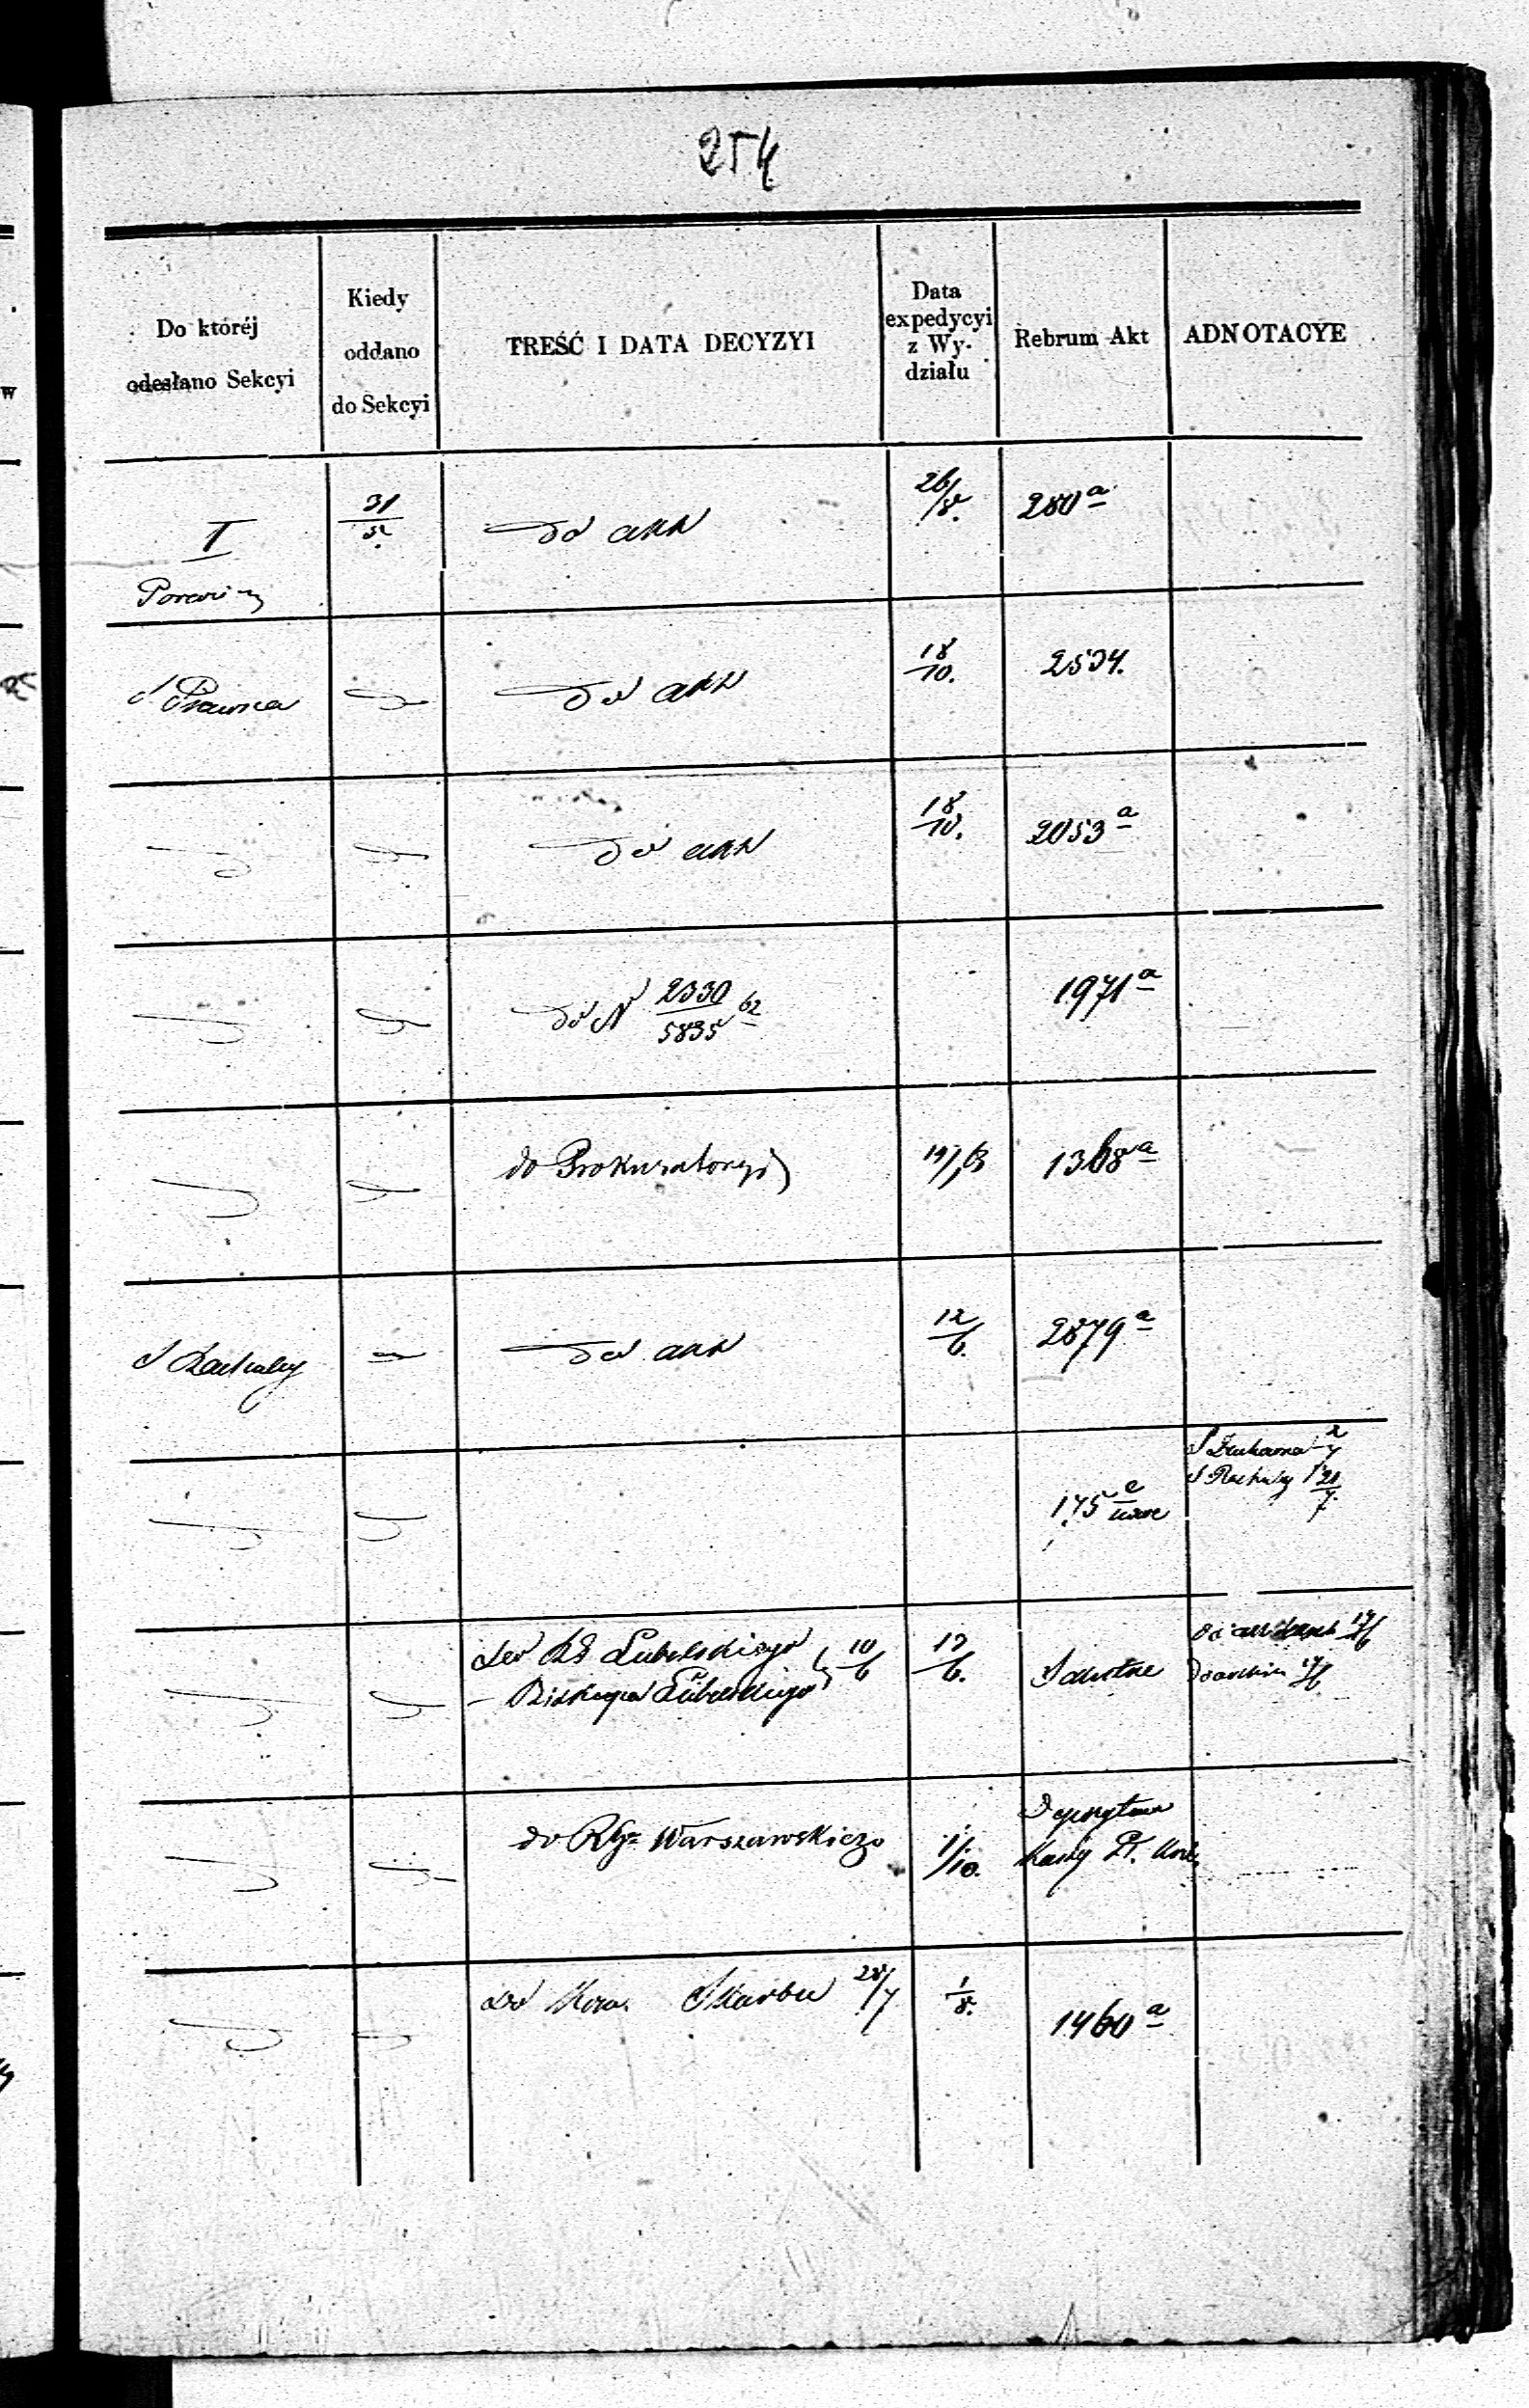 254
Do któréj
odesłano Sekcyi
Kiedy
oddano
do Sekcyi
TREŚĆ I DATA DECYZYI
Data
expedycyi
z Wy-
działu
Rebrum Akt
ADNOTACYE
I
31/5.
do akt
26/8.
280 a
S Prawna
do akt
18/10.
2534.
do akt
18/10.
2053 a
do N 2330/5835 62
1971 a
do Prokuratoryi
1368 a
S Rachuby
do akt
12/6.
2879 a
175
S Rachuby
do RG Lubelskiego
– Biskupa Lubelskiego } 10/6
12/6.
do RGo Warszawskiego
1/10.
Depozytowe
Kassy
do Kom. Skarbu 28/7
1/8.
1460 a